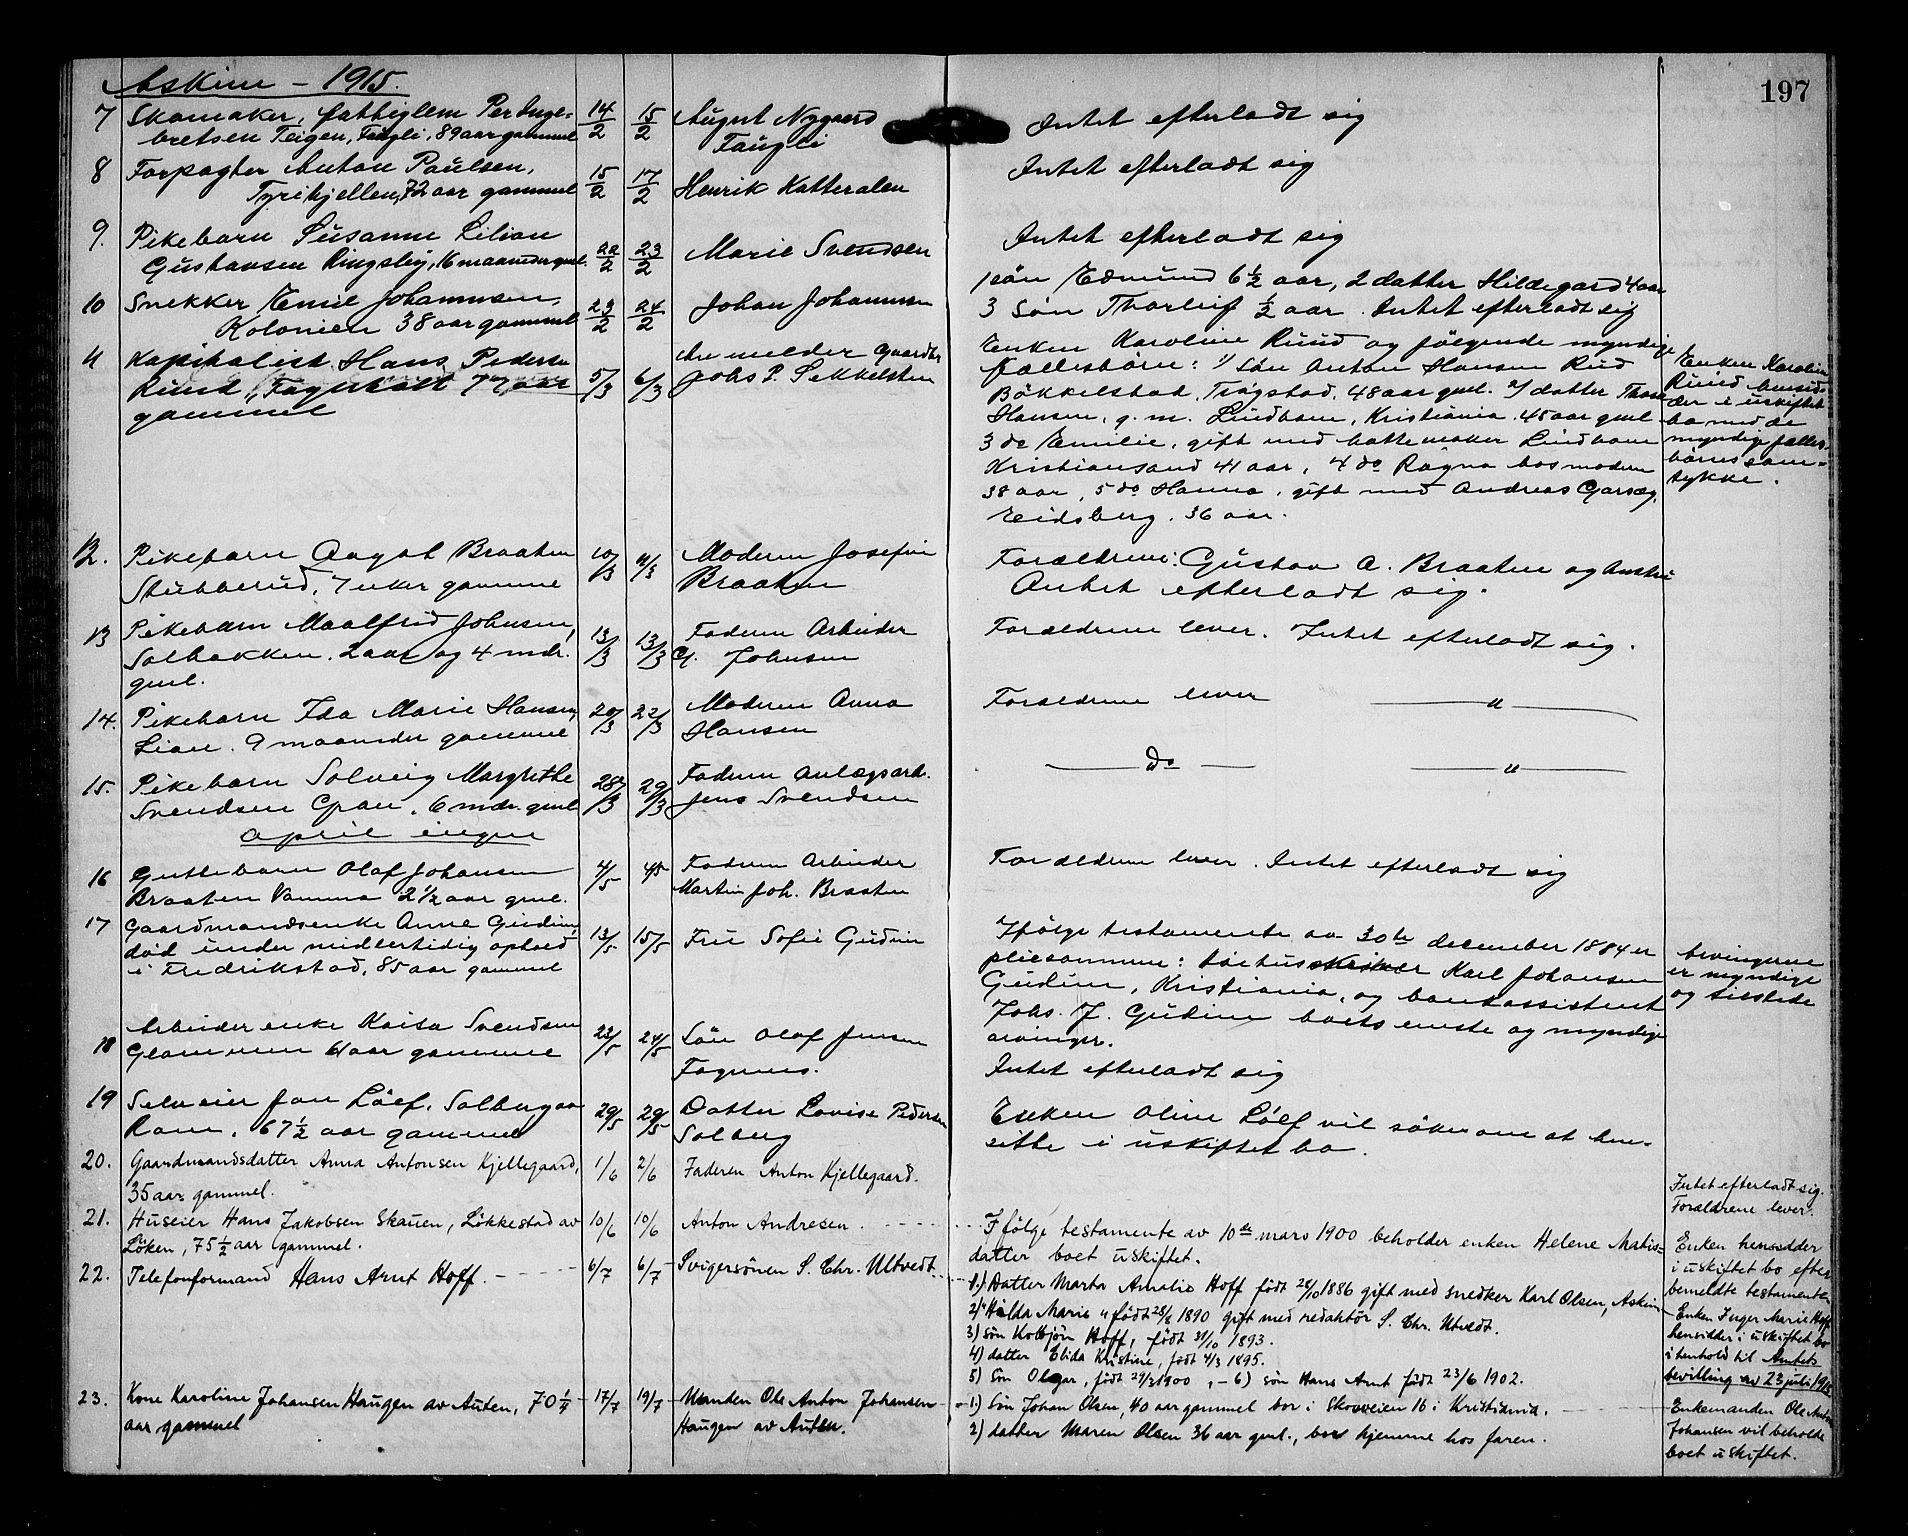 Askim – 1915.
197
7 Skomaker, fattiglem Per Inge- 14/2 15/2 August Nygaard Intet efterladt sig
bretsen Teigen, Faugli, 89 aar gammel Faugli
8 Forpagter Anton Paulsen, 15/2 17/2 Henrik Katteralen Intet efterladt sig
Tyrihjellen, 72 aar gammel
9. Pikebarn Susanne Lilian 22/2 23/2 Marie Svendsen Intet efterladt sig
Gustavsen Kingsley, 16 maaneder gml.
10 Snekker Emil Johannesen, 23/2 24/2 Johan Johannesen 1 søn Edmund 6½ aar, 2 datter Hildegard 4 aar
Kolonien 38 aar gammel 3 Søn Thorleif ½ aar. Intet efterladt sig
11 Kapitalist Hans Pedersen 5/3 6/3 Anmelder Gaardbr. Enken Karoline Ruud og følgende myndige
Ruud, 77 aar Johs P. Sekkelsten fællesbørn: 1/ Søn Anton Hansen Rud
gammel Bøkkelstad, Trøgstad, 48 aar gml. 2/ datter
Hansen, g. m. Lindbom, Kristiania. 45 aar gml
3 do Emilie, gift med hattemaker Lindbom
Kristiansand 41 aar, 4 do Ragna hos moderen
38 aar, 5 do Hanna, gift med Andreas
Eidsberg. 36 aar.
Enken Karoline
Ruud hensid-
der i uskiftet
bo med de
myndige fælles-
børns sam-
tykke.
12. Pikebarn Aagot Braaten 10/3 11/3 Moderen Josefine Forældrene: Gustav A. Braaten og hustru
Stubberud, 7 uker gammel Braaten Intet efterladt sig.
13 Pikebarn Maalfrid Johnsen, 13/3 13/3 Faderen Arbeider Forældrene lever. Intet efterladt sig.
Solbakken. 2 aar og 4 mdr. Johnsen
gml.
14. Pikebarn Ida Marie Hansen, 20/3 22/3 Moderen Anna Forældrene lever — " —
Lian. 9 maaneder gammel Hansen
15. Pikebarn Solveig Margrethe 28/3 29/3 Faderen Anlægsarb. — Do — — " —
Svendsen Gran, 6 mdr. gml Jens Svendsen
April ingen
16 Guttebarn Olaf Johansen 4/5 4/5 Faderen Arbeider Forældrene lever. Intet efterladt sig
Braaten Vamma 2½ aar gml. Martin Joh. Braaten
17 Gaardmandsenke Anne Gudim, 13/5 15/5 Fru Sofie Gudim Ifølge testamente av 30te december 1884 er
død under midlertidig ophold pleiesønnene: Karl Johansen
i Fredrikstad, 85 aar gammel Gudim, Kristiania, og bankassistent
Johs. J. Gudim boets eneste og myndige
arvinger.
Arvingerne
er myndige
og tilstede
18 Arbeider enke Kaisa Svendsen 22/5 24/5 Søn Olof Jensen Intet efterladt sig
Glommen 61 aar gammel Fagernes.
19 Selveier Jan Löef. Solberg av 29/5 29/5 Datter Lovise Pedersen Enken Oline Löef vil søke om at hen-
Rom. 67½ aar gammel Solberg sitte i uskiftet bo.
20. Gaardmandsdatter Anna Antonsen Kjellegaard, 1/6 2/6 Faderen Anton Kjellegaard. Intet efterladt sig.
35 aar gammel. Forældrene lever.
21. Huseier Hans Jakobsen Skauen, Løkkestad av 10/6 10/6 Anton Andresen. Ifølge testamente av 10de mars 1900 beholder enken Helene Mathis-
Løken, 75½ aar gammel. datter boet uskiftet.
Enken hensidder
i uskiftet bo efter
bemeldte testamente
22. Telefonformand Hans Arnt Hoff. 6/7 6/7 Svigersønen S. Chr. Utvedt. 1.) Datter Marta Amalie Hoff født 28/10 1886 gift med snedker Karl Olsen, Askim
2) " Hilda Marie " født 28/8 1890 gift med redaktør S. Chr. Utvedt.
3) søn Kolbjön Hoff, født 31/10 1893.
4) datter Elida Kristine, født 4/3 1895.
5) Søn Olgar, født 29/3 1900, – 6) søn Hans Arnt født 23/6 1902.
Enken Inger Marie Hoff
hensitter i uskiftet bo
i henhold til Amtets
bevilling av 23 juli 1915
23. Kone Karoline Johansen Haugen av Auten, 70¼ 17/7 19/7 Manden Ole Anton Johansen 1.) Søn Johan Olsen, 40 aar gammel bor i Skovveien 16 i Kristiania.
aar gammel Haugen av Auten. 2) datter Maren Olsen 36 aar gml., bor hjemme hos faren.
Enkemanden Ole Anton
Johansen vil beholde
boet uskiftet.